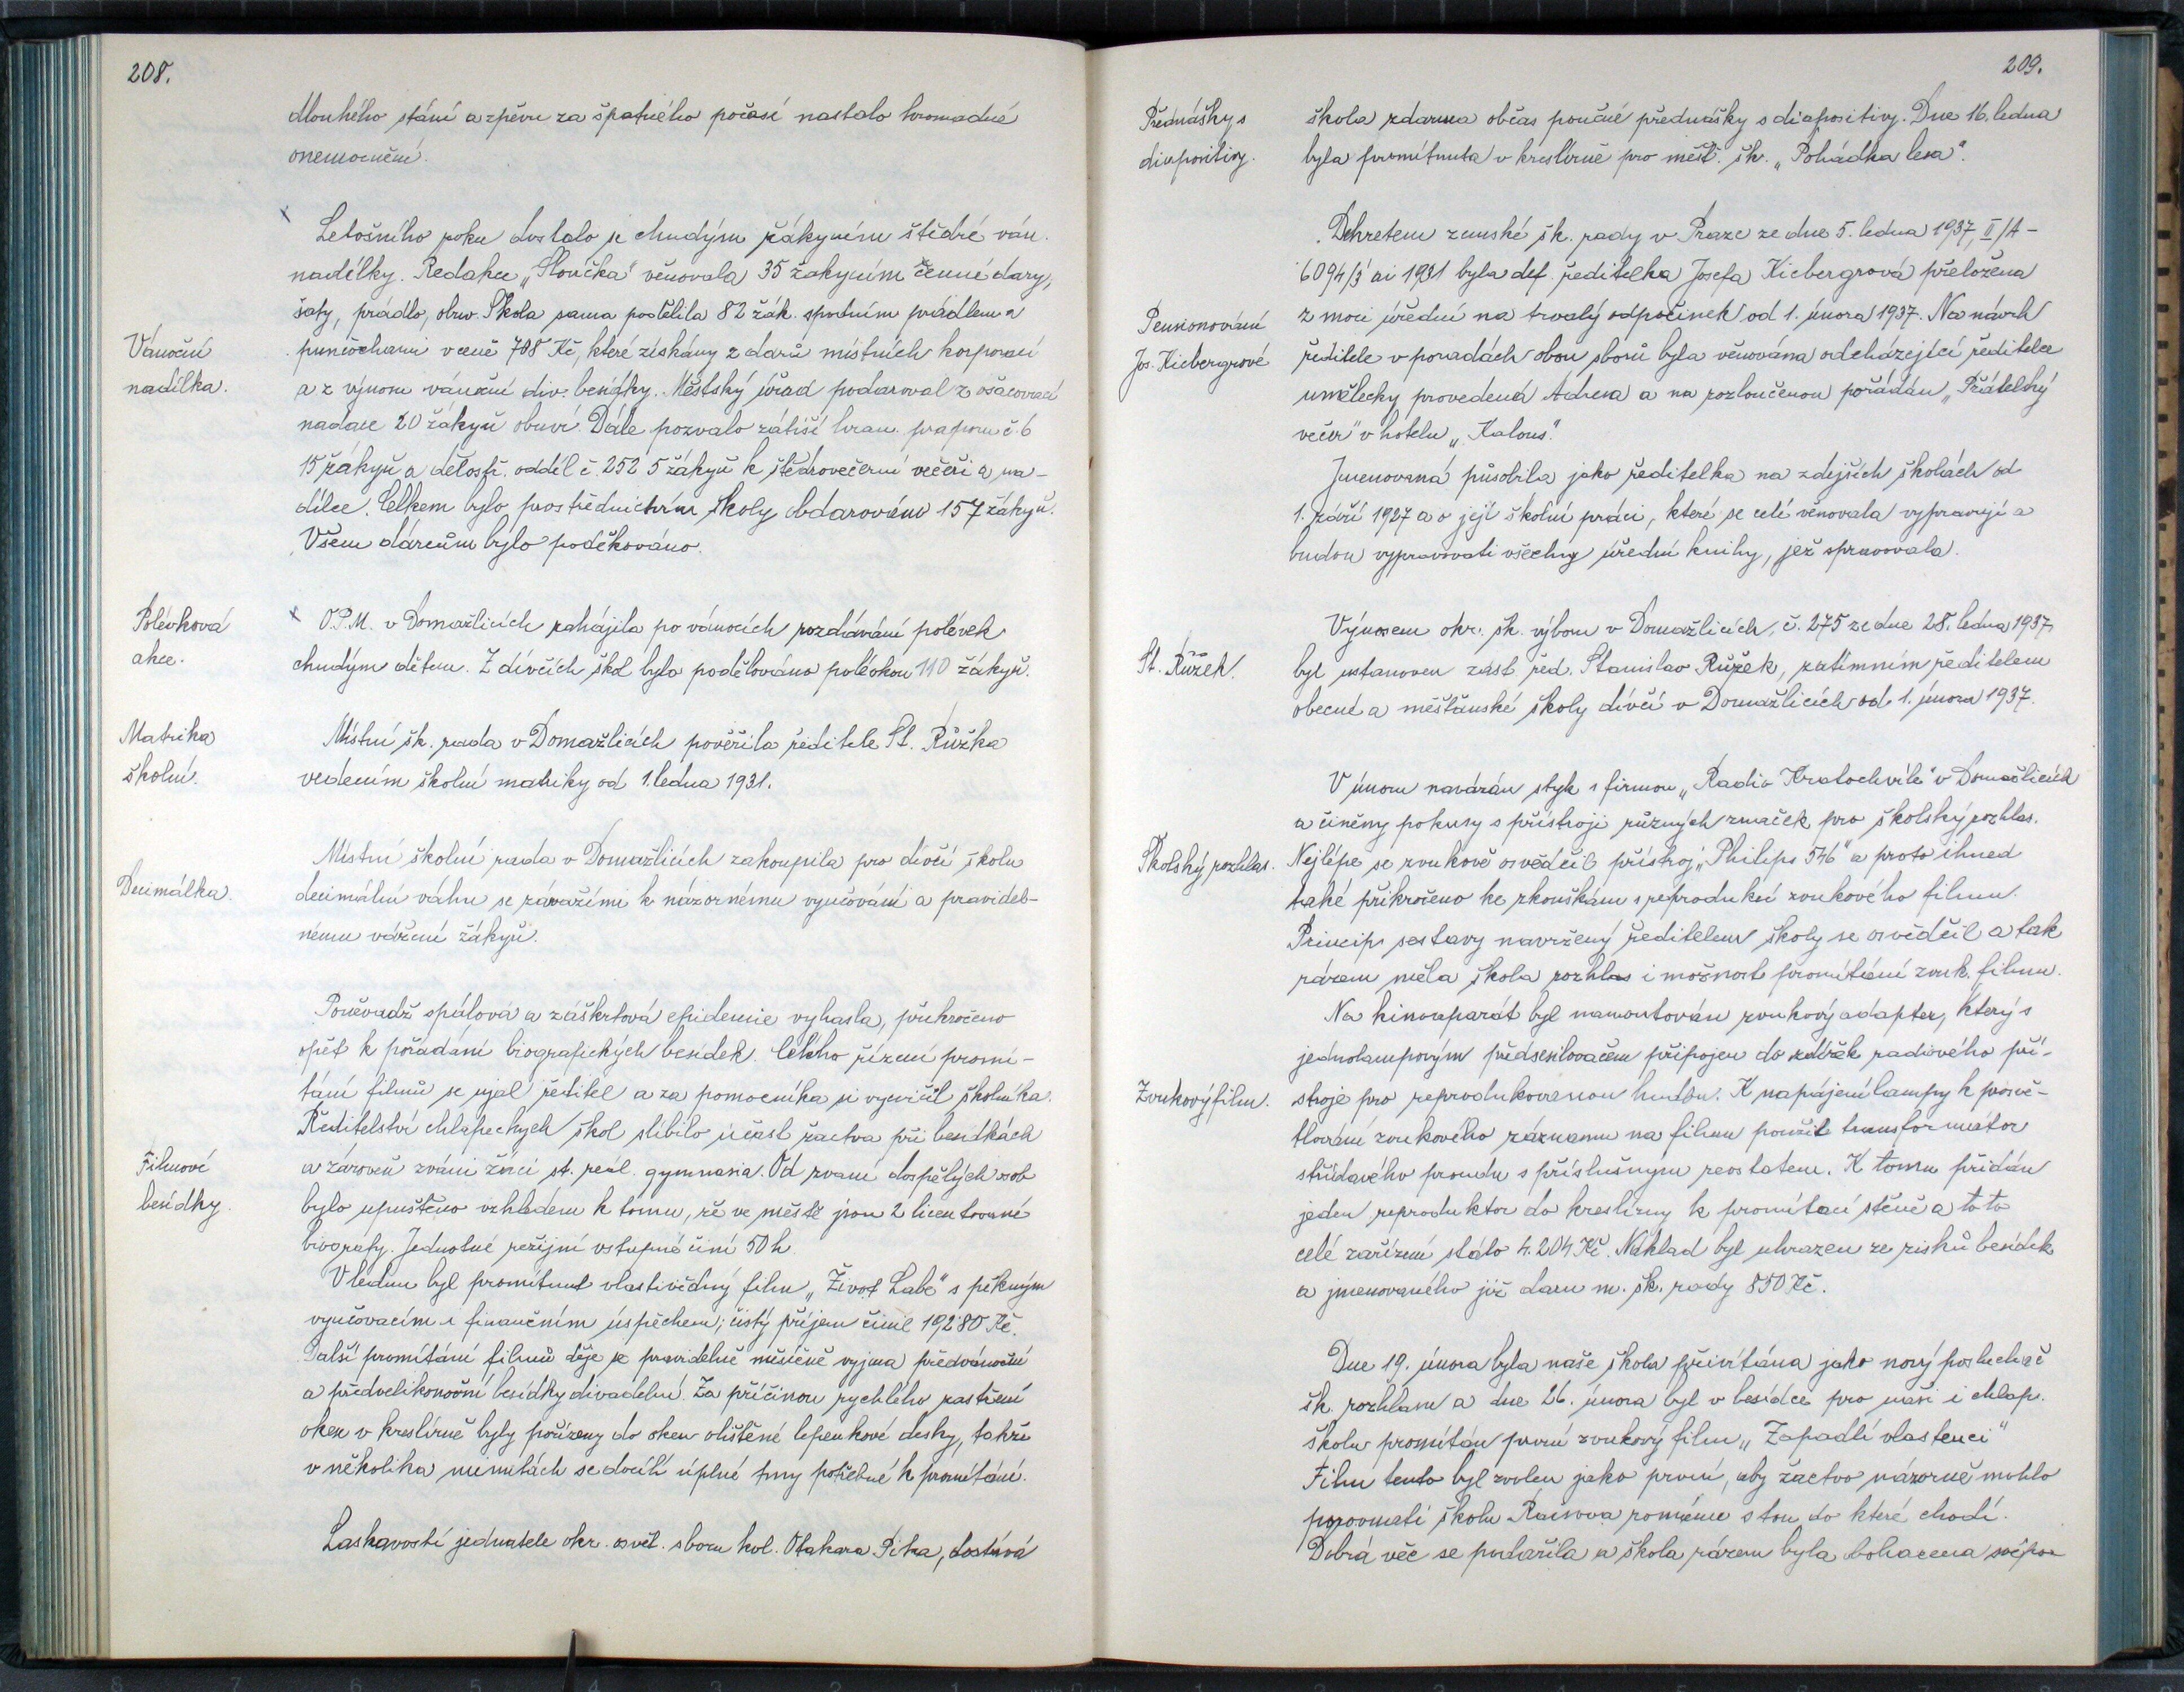 208.
dlouhého stání a zpěvu za špatného počasí nastalo hromadné
onemocnění.
Letošního roku dostalo se chudým žákyním štědré ván.
nadělky. Redakce „Sluníčka" věnovala 35 žákyním cenné dary,
šaty, prádlo, obuv. Škola sama podělila 82 žák. spodním prádlem a
Vánoční
nadílka.
punčochami v ceně 708 Kč, které získány z darů místních korporací
a z výnosu vánoční div. besídky. Městský úřad podaroval z ošacovací
nadace 20 žákyň obuví. Dále pozvalo zátiší hran. praporu č. 6
15 žákyň a dělostř. oddíl č. 252 5 žákyň k štědrovečerní večeři a na-
dílce. Celkem bylo prostřednictvím školy obdarováno 157 žákyň.
Všem dárcům bylo poděkováno.
Polévková
akce.
O.P.M. v Domažlicích zahájila po vánocích rozdávání polévek
chudým dětem. Z dívčích škol bylo podělováno polévkou 110 žákyň.
Matrika
školní.
Místní šk. rada v Domažlicích pověřila ředitele St. Růžka
vedením školní matriky od 1. ledna 1931.
Místní školní rada v Domažlicích zakoupila pro dívčí školu
Decimálka.
decimální váhu se závažími k názornému vyučování a pravidel-
nému vážení žákyň.
Poněvadž spálová a záškrtová epidemie vyhasla, přikročeno
opět k pořádání biografických besídek. Celého řízení promí-
tání filmů se ujal ředitel a za pomocníka si vycvičil školníka.
Ředitelství chlapeckých škol slíbilo účast žactva při besídkách
Filmové
besídky.
a zároveň zváni žáci st. reál. gymnasia. Od zvaní dospělých osob
bylo upuštěno vzhledem k tomu, že ve městě jsou 2 licentované
biografy. Jednotné režijní vstupné činí 50 h.
V lednu byl promítnut vlastivědný film „Život Labe" s pěkným
vyučovacím i finančním úspěchem; čistý příjem činil 192.80 Kč.
Další promítání filmů děje se pravidelně měsíčně vyjma předvánoční
a předvelikonoční besídky divadelní. Za příčinou rychlého zastření
oken v kreslírně byly pořízeny do oken olištěné lepenkové desky, takže
v několika minutách se docílí úplné tmy potřebné k promítání.
Laskavostí jednatele okr. osvět. sboru kol. Otakara Pika, dostává
209.
Přednášky s
diapositivy.
škola zdarma občas poučné přednášky s diapositivy. Dne 16. ledna
byla promítnuta v kreslírně pro měšť. šk. „Pohádka lesa".
Dekretem zemské šk. rady v Praze ze dne 5. ledna 1937, II/A-
6094/3 ai 1931 byla def. ředitelka Josefa Kiebergrová přeložena
Pensionování
Jos. Kiebergrové
z moci úřední na trvalý odpočinek od 1. února 1937. Na návrh
ředitele v poradách obou sborů byla věnována odcházející ředitelce
umělecky provedená Adresa a na rozloučenou pořádán „Přátelský
večer" v hotelu „Kalous".
Jmenovaná působila jako ředitelka na zdejších školách od
1. září 1927 a o její školní práci, které se celé věnovala vypravují a
budou vypravovati všechny úřední knihy, jež spravovala.
Výnosem okr. šk. výboru v Domažlicích, č. 275 ze dne 28. ledna 1937
St. Růžek.
byl ustanoven zást. řed. Stanislav Růžek, zatímním ředitelem
obecné a měšťanské školy dívčí v Domažlicích od 1. února 1937.
V únoru navázán styk s firmou „Radio Kratochvíle" v Domažlicích
a činěny pokusy s přístroji různých značek pro školský rozhlas.
Školský rozhlas.
Nejlépe se zvukově osvědčil přístroj „Philips 546" a proto ihned
také přikročeno ke zkouškám s reprodukcí zvukového filmu.
Princip sestavy navržený ředitelem školy se osvědčil a tak
rázem měla škola rozhlas i možnost promítání zvuk. filmu.
Na kinoaparát byl namontován zvukový adapter, který s
jednolampovým předsesilovačem připojen do zdířek radiového pří-
Zvukový film.
stroje pro reprodukovanou hudbu. K napájení lampy k prosvě-
tlování zvukového záznamu na filmu použit transformátor
střídavého proudu s příslušným reostatem. K tomu přidán
jeden reproduktor do kreslírny k promítací stěně a toto
celé zařízení stálo 4.204 Kč. Náklad byl uhrazen ze zisků besídek
a jmenovaného již daru m. šk. rady 850 Kč.
Dne 19. února byla naše škola přivítána jako nový posluchač
šk. rozhlasu a dne 26. února byl v besídce pro naši i chlap.
školu promítán první zvukový film „Zapadlí vlastenci"
Film tento byl zvolen jako první, aby žactvo názorně mohlo
porovnati školu Raisova románu s tou do které chodí.
Dobrá věc se podařila a škola rázem byla obohacena